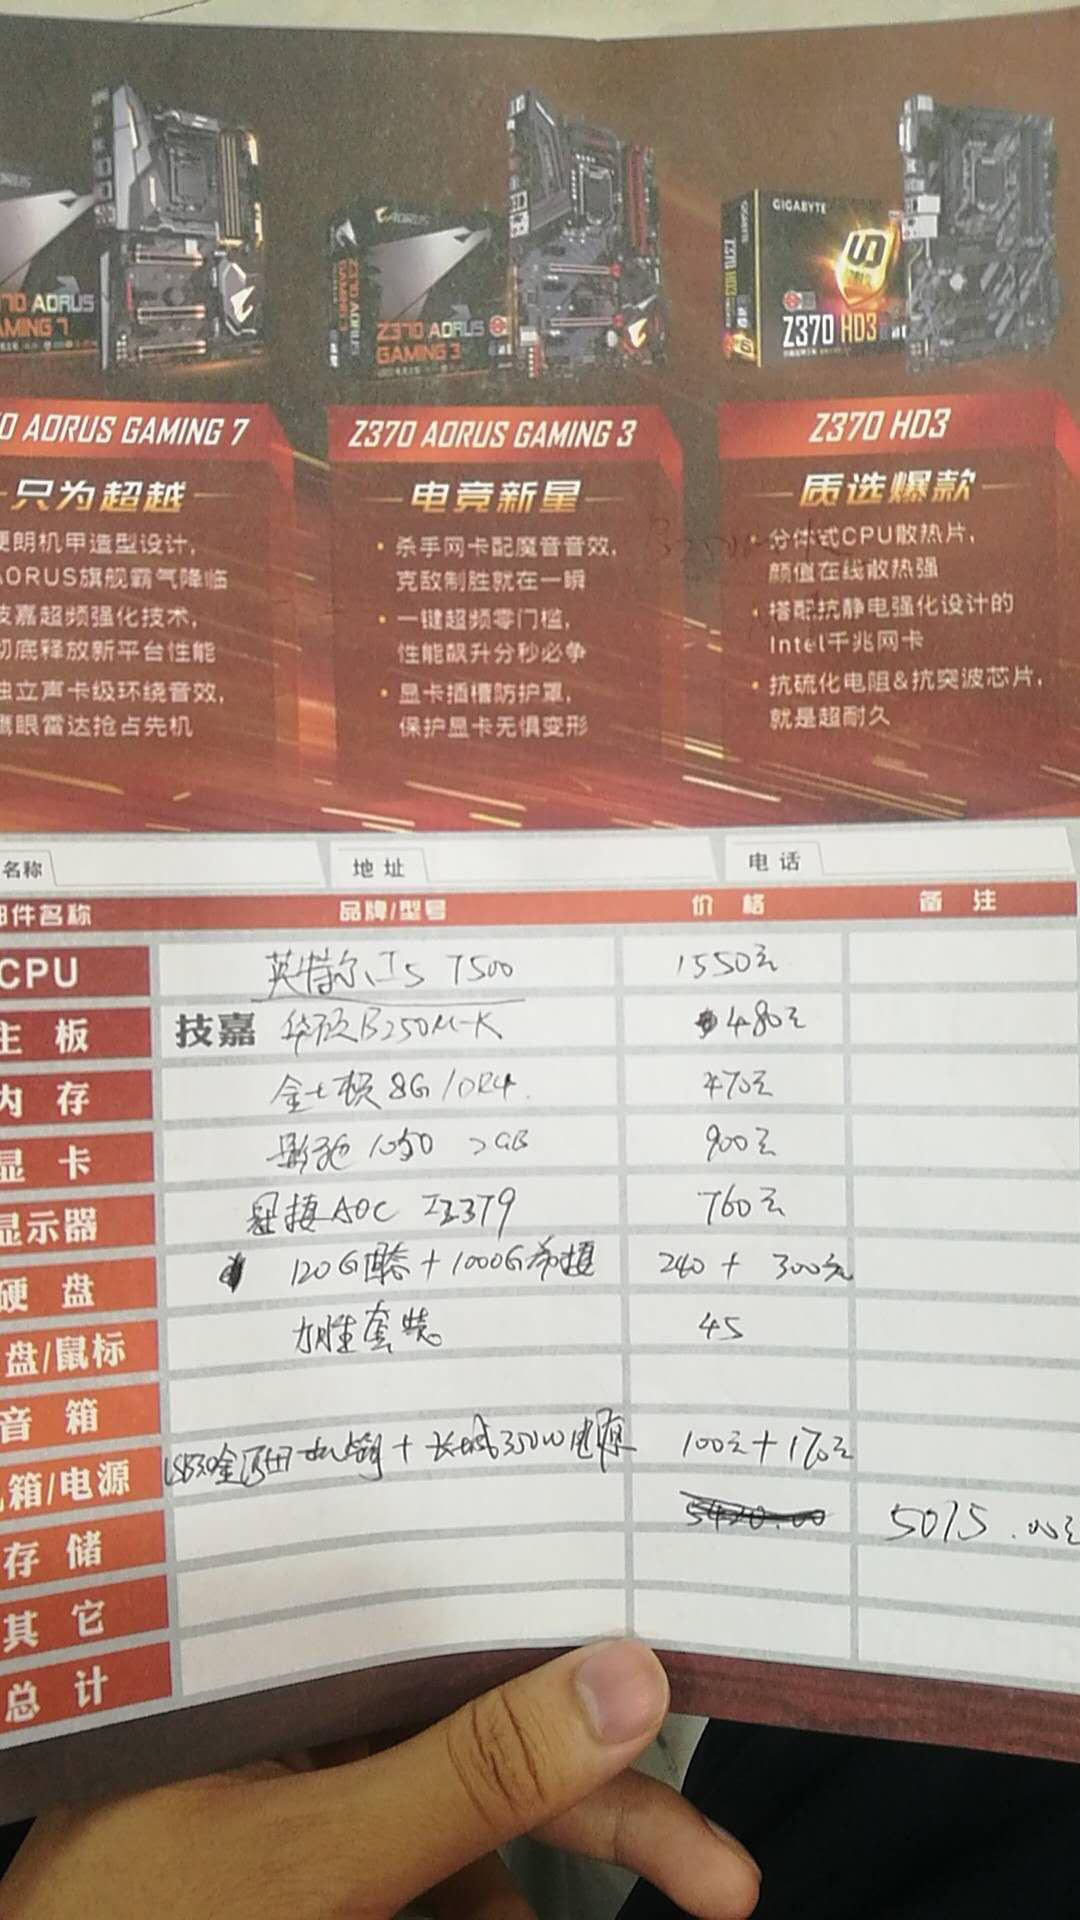 GIGABYTE
AORUS
Z370 AORUS
GAMING 3
AORUS
GAMING 7
Z370 AORUS
GAMING 3
Z370 HD3
Z370 HD3
0 AORUS GAMING 7
Z370 AORUS GAMING 3
Z370 HD3
只为超越
电竞新星
质选爆款
硬朗机甲造型设计,
AORUS旗舰霸气降临
技嘉超频强化技术,
彻底释放新平台性能
独立声卡级环绕音效,
鹰眼雷达抢占先机
• 杀手网卡配魔音音效,
克敌制胜就在一瞬
• 一键超频零门槛,
性能飙升分秒必争
• 显卡插槽防护罩,
保护显卡无惧变形
• 分体式CPU散热片,
颜值在线散热强
• 搭配抗静电强化设计的
Intel千兆网卡
• 抗硫化电阻&抗突波芯片,
就是超耐久
名称 地址 电话
部件名称 品牌/型号 价格 备注
CPU 英特尔 I5 7500 1550元
主板 技嘉 华硕B250M-K 480元
内存 金士顿 8G/DR4. 470元
显卡 影驰 1050 2GB 900元
显示器 AOC 760元
硬盘 120G固态+1000G希捷 240+300元
盘/鼠标 套装 45
音箱
机箱/电源 金河田 + 长城350W电源 100元+170元
5420.00 5075.00元
存储
其它
总计